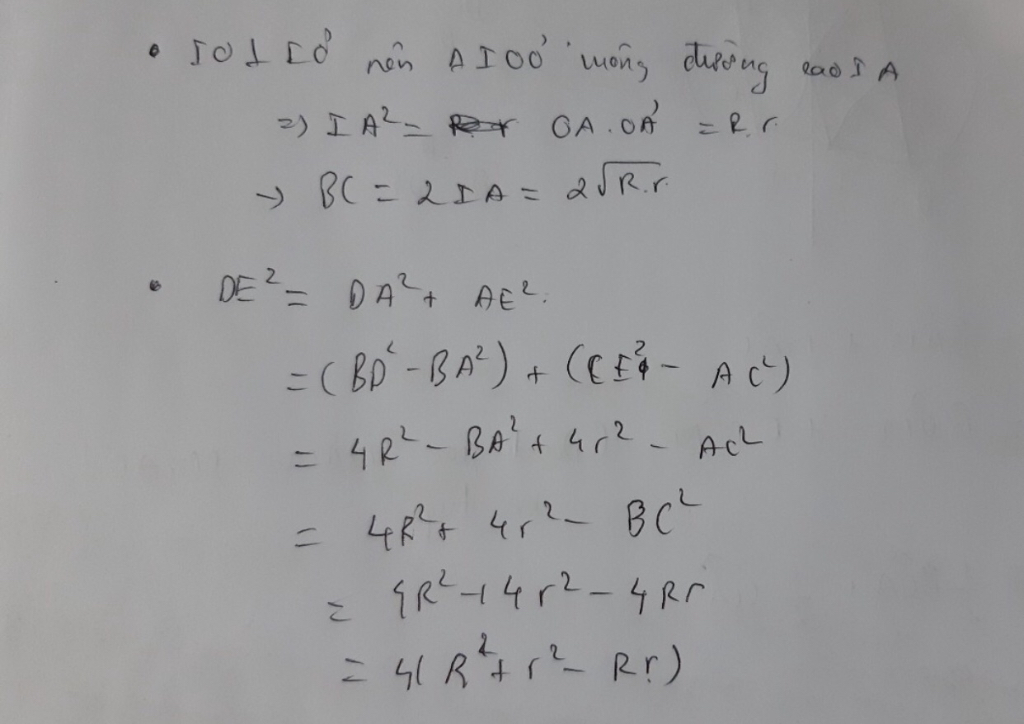 • IO ⊥ IO' nên ΔIOO' vuông đường cao IA
=> IA² = OA.OA' = R.r
→ BC = 2IA = 2√R.r
• DE² = DA² + AE².
= (BD² - BA²) + (CE² - AC²)
= 4R² - BA² + 4r² - AC²
= 4R² + 4r² - BC²
= 4R² + 4r² - 4Rr
= 4(R² + r² - Rr)